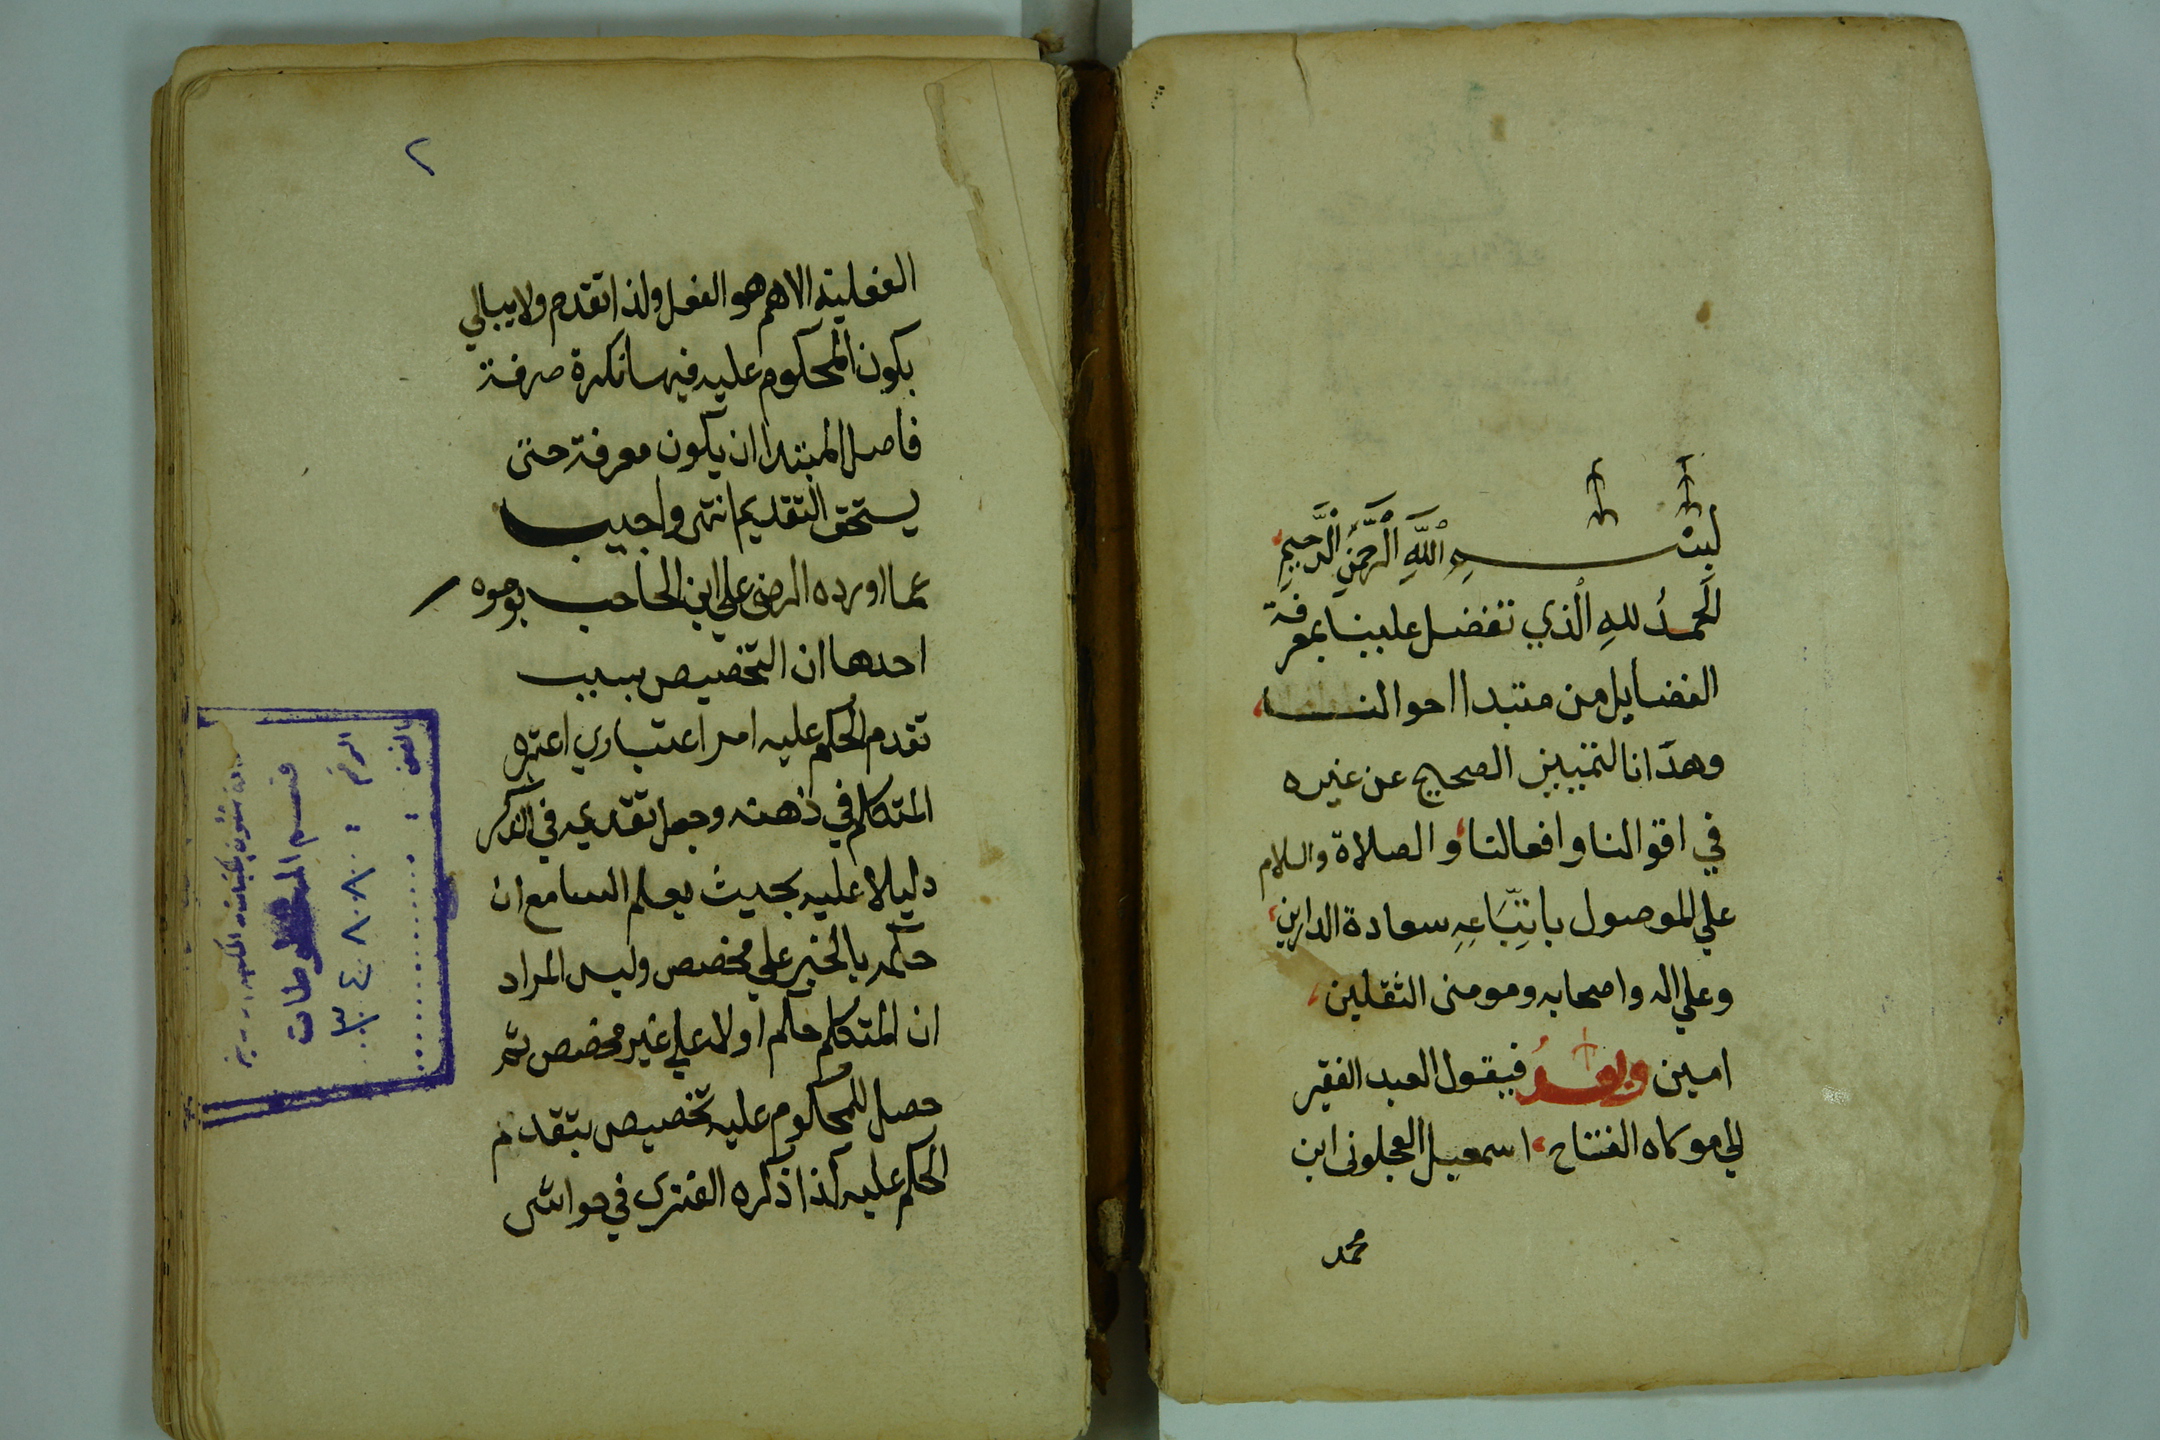 بسم الله الرحمن الرحيم
الحمد لله الذي تفضل علينا بمعرفة
الفضايل من مبتدا احوالنا
وهدانا لتمييز الصحيح عن غيره
في اقوالنا وافعالنا والصلاة والسلام
علي الموصول باتباعه سعادة الدارين
وعلي اله واصحابه ومومني الثقلين
امين وبعد فيقول العبد الفقير
الي مولاه الفتاح اسمعيل العجلوني ابن
محمد
٢
الفعلية الاهم هو الفعل ولذا تقدم ولا يبالي
بكون المحكوم عليه فيها نكرة صرفة
فاصل المبتدا ان يكون معرفة حتى
يستحق التقديم انتهى واجيب
عما اورده الرضي علي ابن الحاحب بوجوه
احدها ان التخصيص بسبب
تقدم الحكم عليه امر اعتباري اعتبره
المتكلم في ذهنه وجعل تقديمه في الذكر
دليلا عليه بحيث يعلم السامع ان
حكمه بالخبر علي مخصص وليس المراد
ان المتكلم حكم اولا علي غير مخصص ثم
حصل للمحكوم عليه تخصيص بتقدم
الحكم عليه كذا ذكره الفنري في حواشي
قسم المخطوطات
الرقم : ٣٤٨٨٠
الفن :